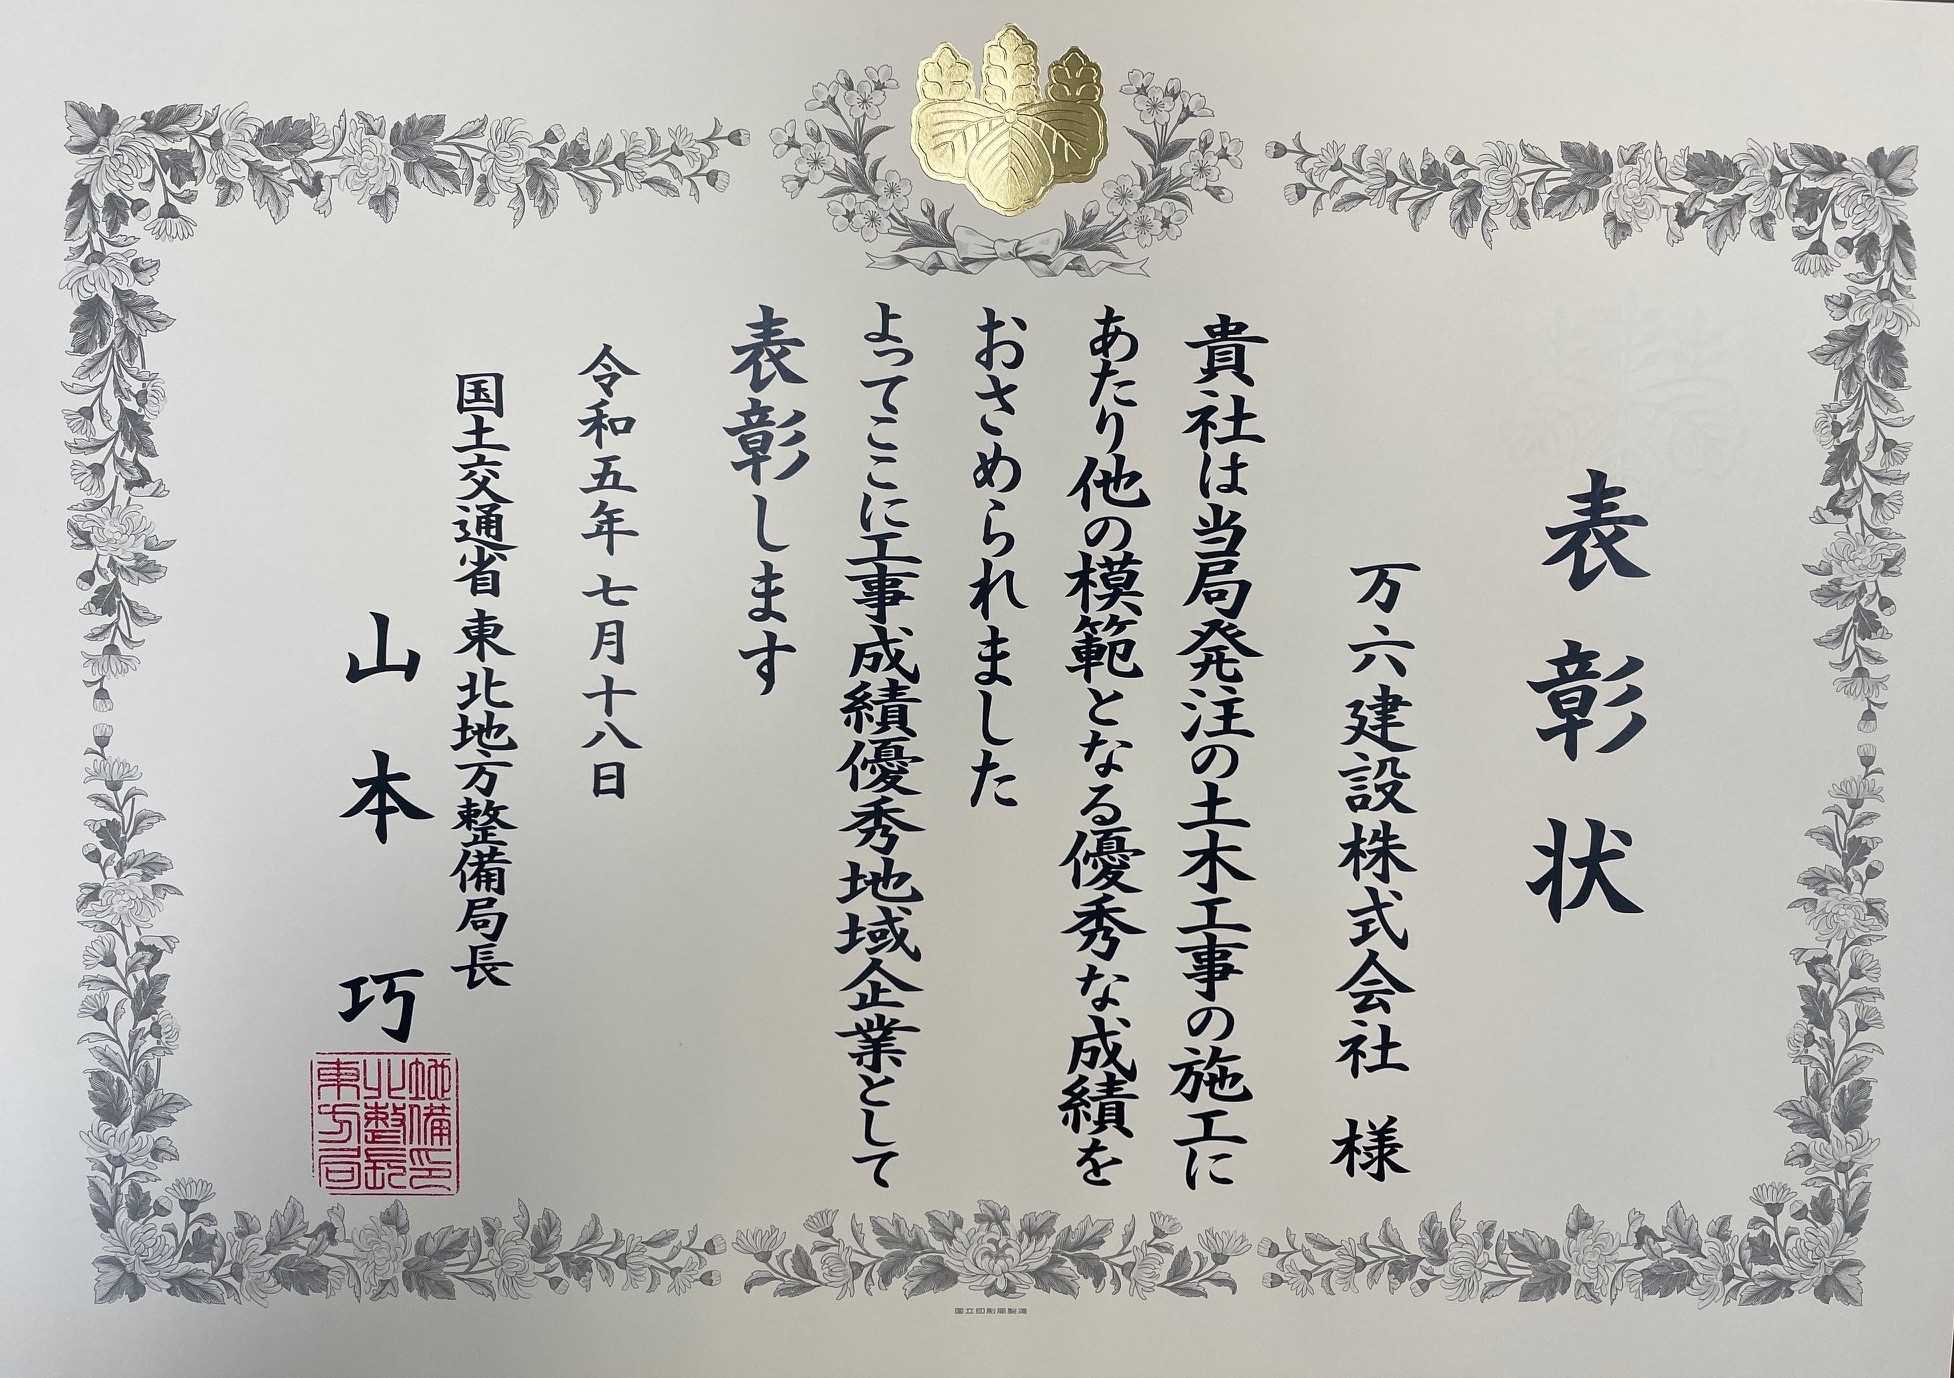 表彰状
万六建設株式会社 様
貴社は当局発注の土木工事の施工に
あたり他の模範となる優秀な成績を
おさめられました
よってここに工事成績優秀地域企業として
表彰します
令和五年 七月十八日
国土交通省 東北地方整備局長
山本 巧
東北地
方整備
局長印
国立印刷局製造